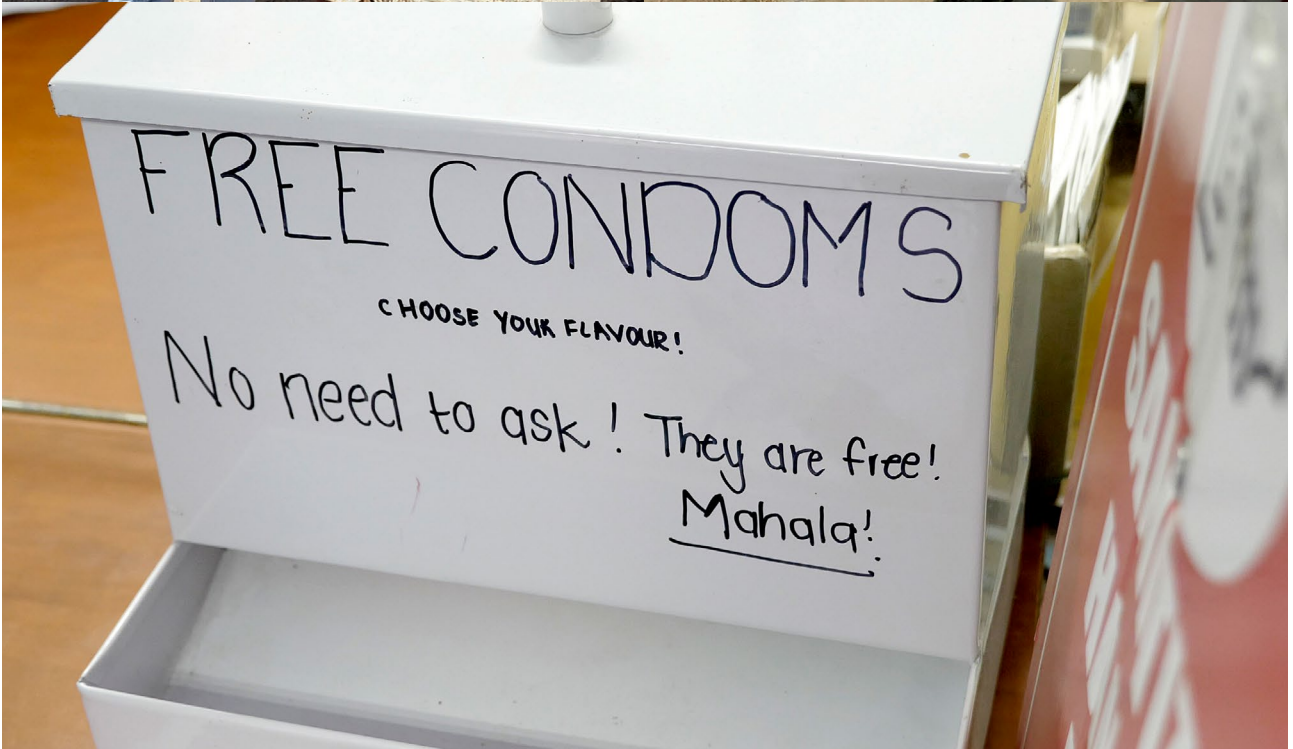 FREE CONDOMS
CHOOSE YOUR FLAVOUR!
No need to ask! They are free!
Mahala!